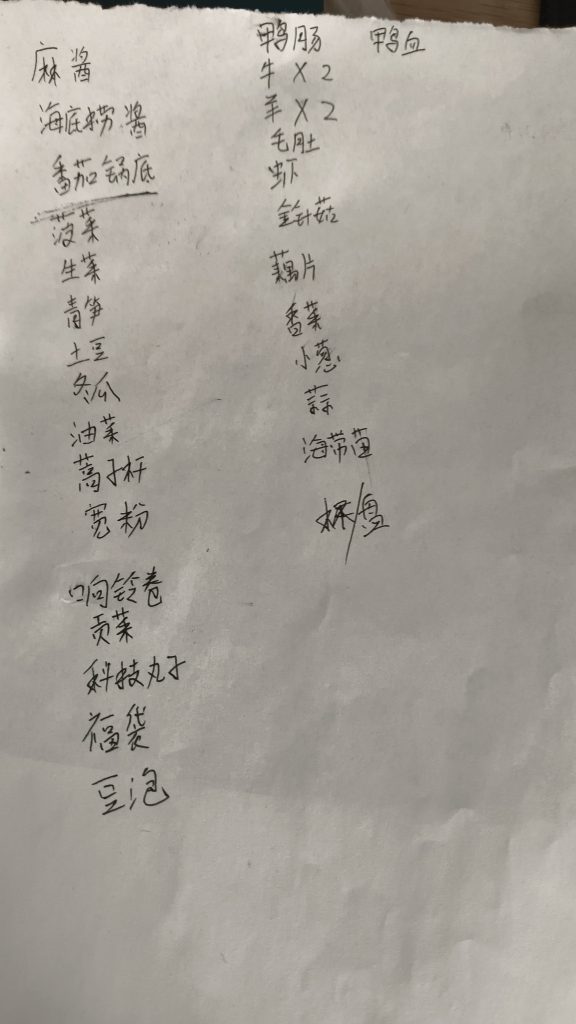 麻酱
海底捞酱
番茄锅底
菠菜
生菜
青笋
土豆
冬瓜
油菜
蒿子杆
宽粉
响铃卷
贡菜
科技丸子
福袋
豆泡
鸭肠 鸭血
牛 X 2
羊 X 2
毛肚
虾
金针菇
藕片
香菜
小葱
蒜
海带苗